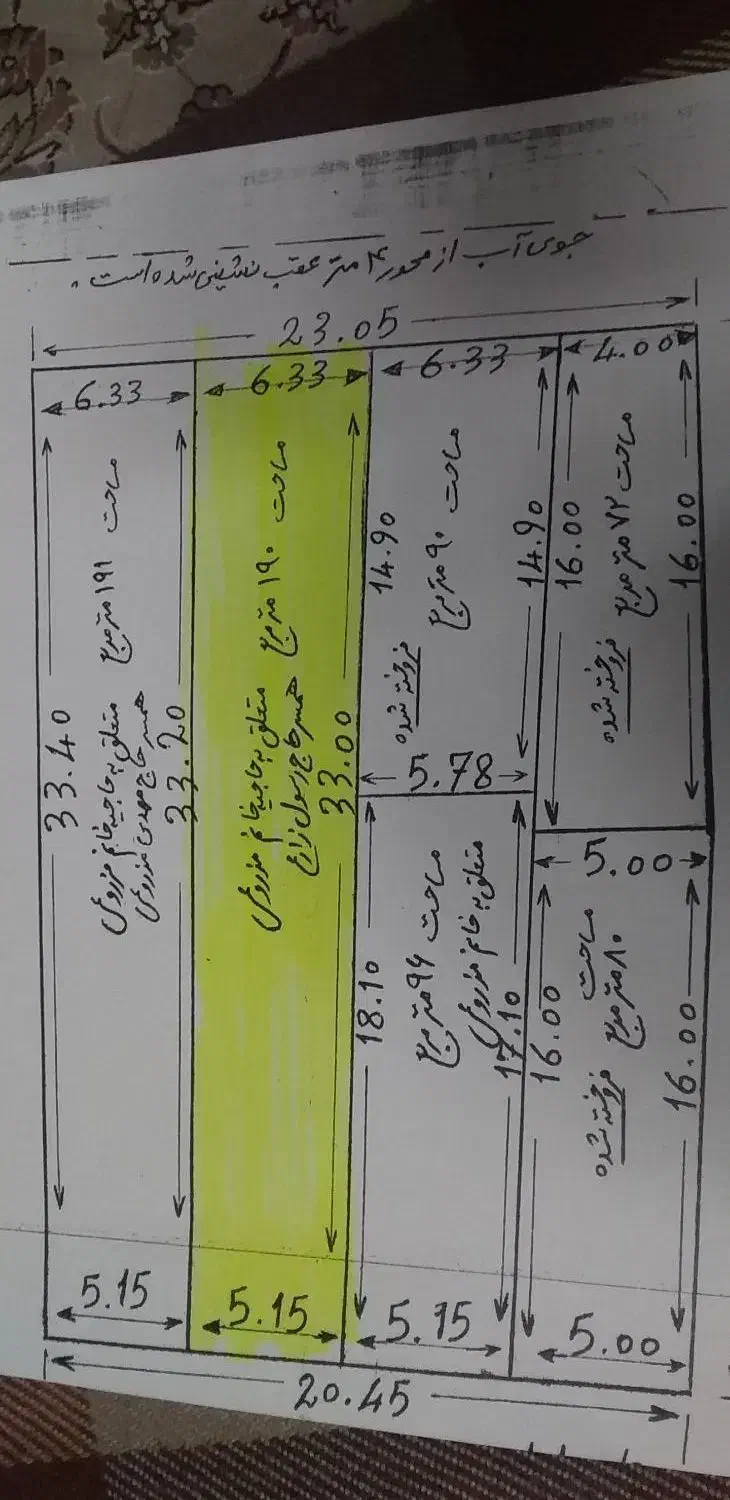 جوی آب از محور ۴ متر عقب نشینی شده است.
23.05
6.33
6.33
6.33
4.00
مساحت ۱۹۱ متر مربع
متعلق به حاجیه خانم مزروعی
همسر حاج مهدی مزروعی
33.40
33.20
5.15
مساحت ۱۹۰ متر مربع
متعلق به حاجیه خانم مزروعی
همسر حاج رسول زارع
33.00
5.15
مساحت ۹۰ متر مربع
فروخته شده
14.90
14.90
5.78
مساحت ۹۶ متر مربع
متعلق به خانم مزروعی
18.10
17.10
5.15
مساحت ۷۲ متر مربع
فروخته شده
16.00
16.00
5.00
مساحت
۸۰ متر مربع
فروخته شده
16.00
16.00
5.00
20.45